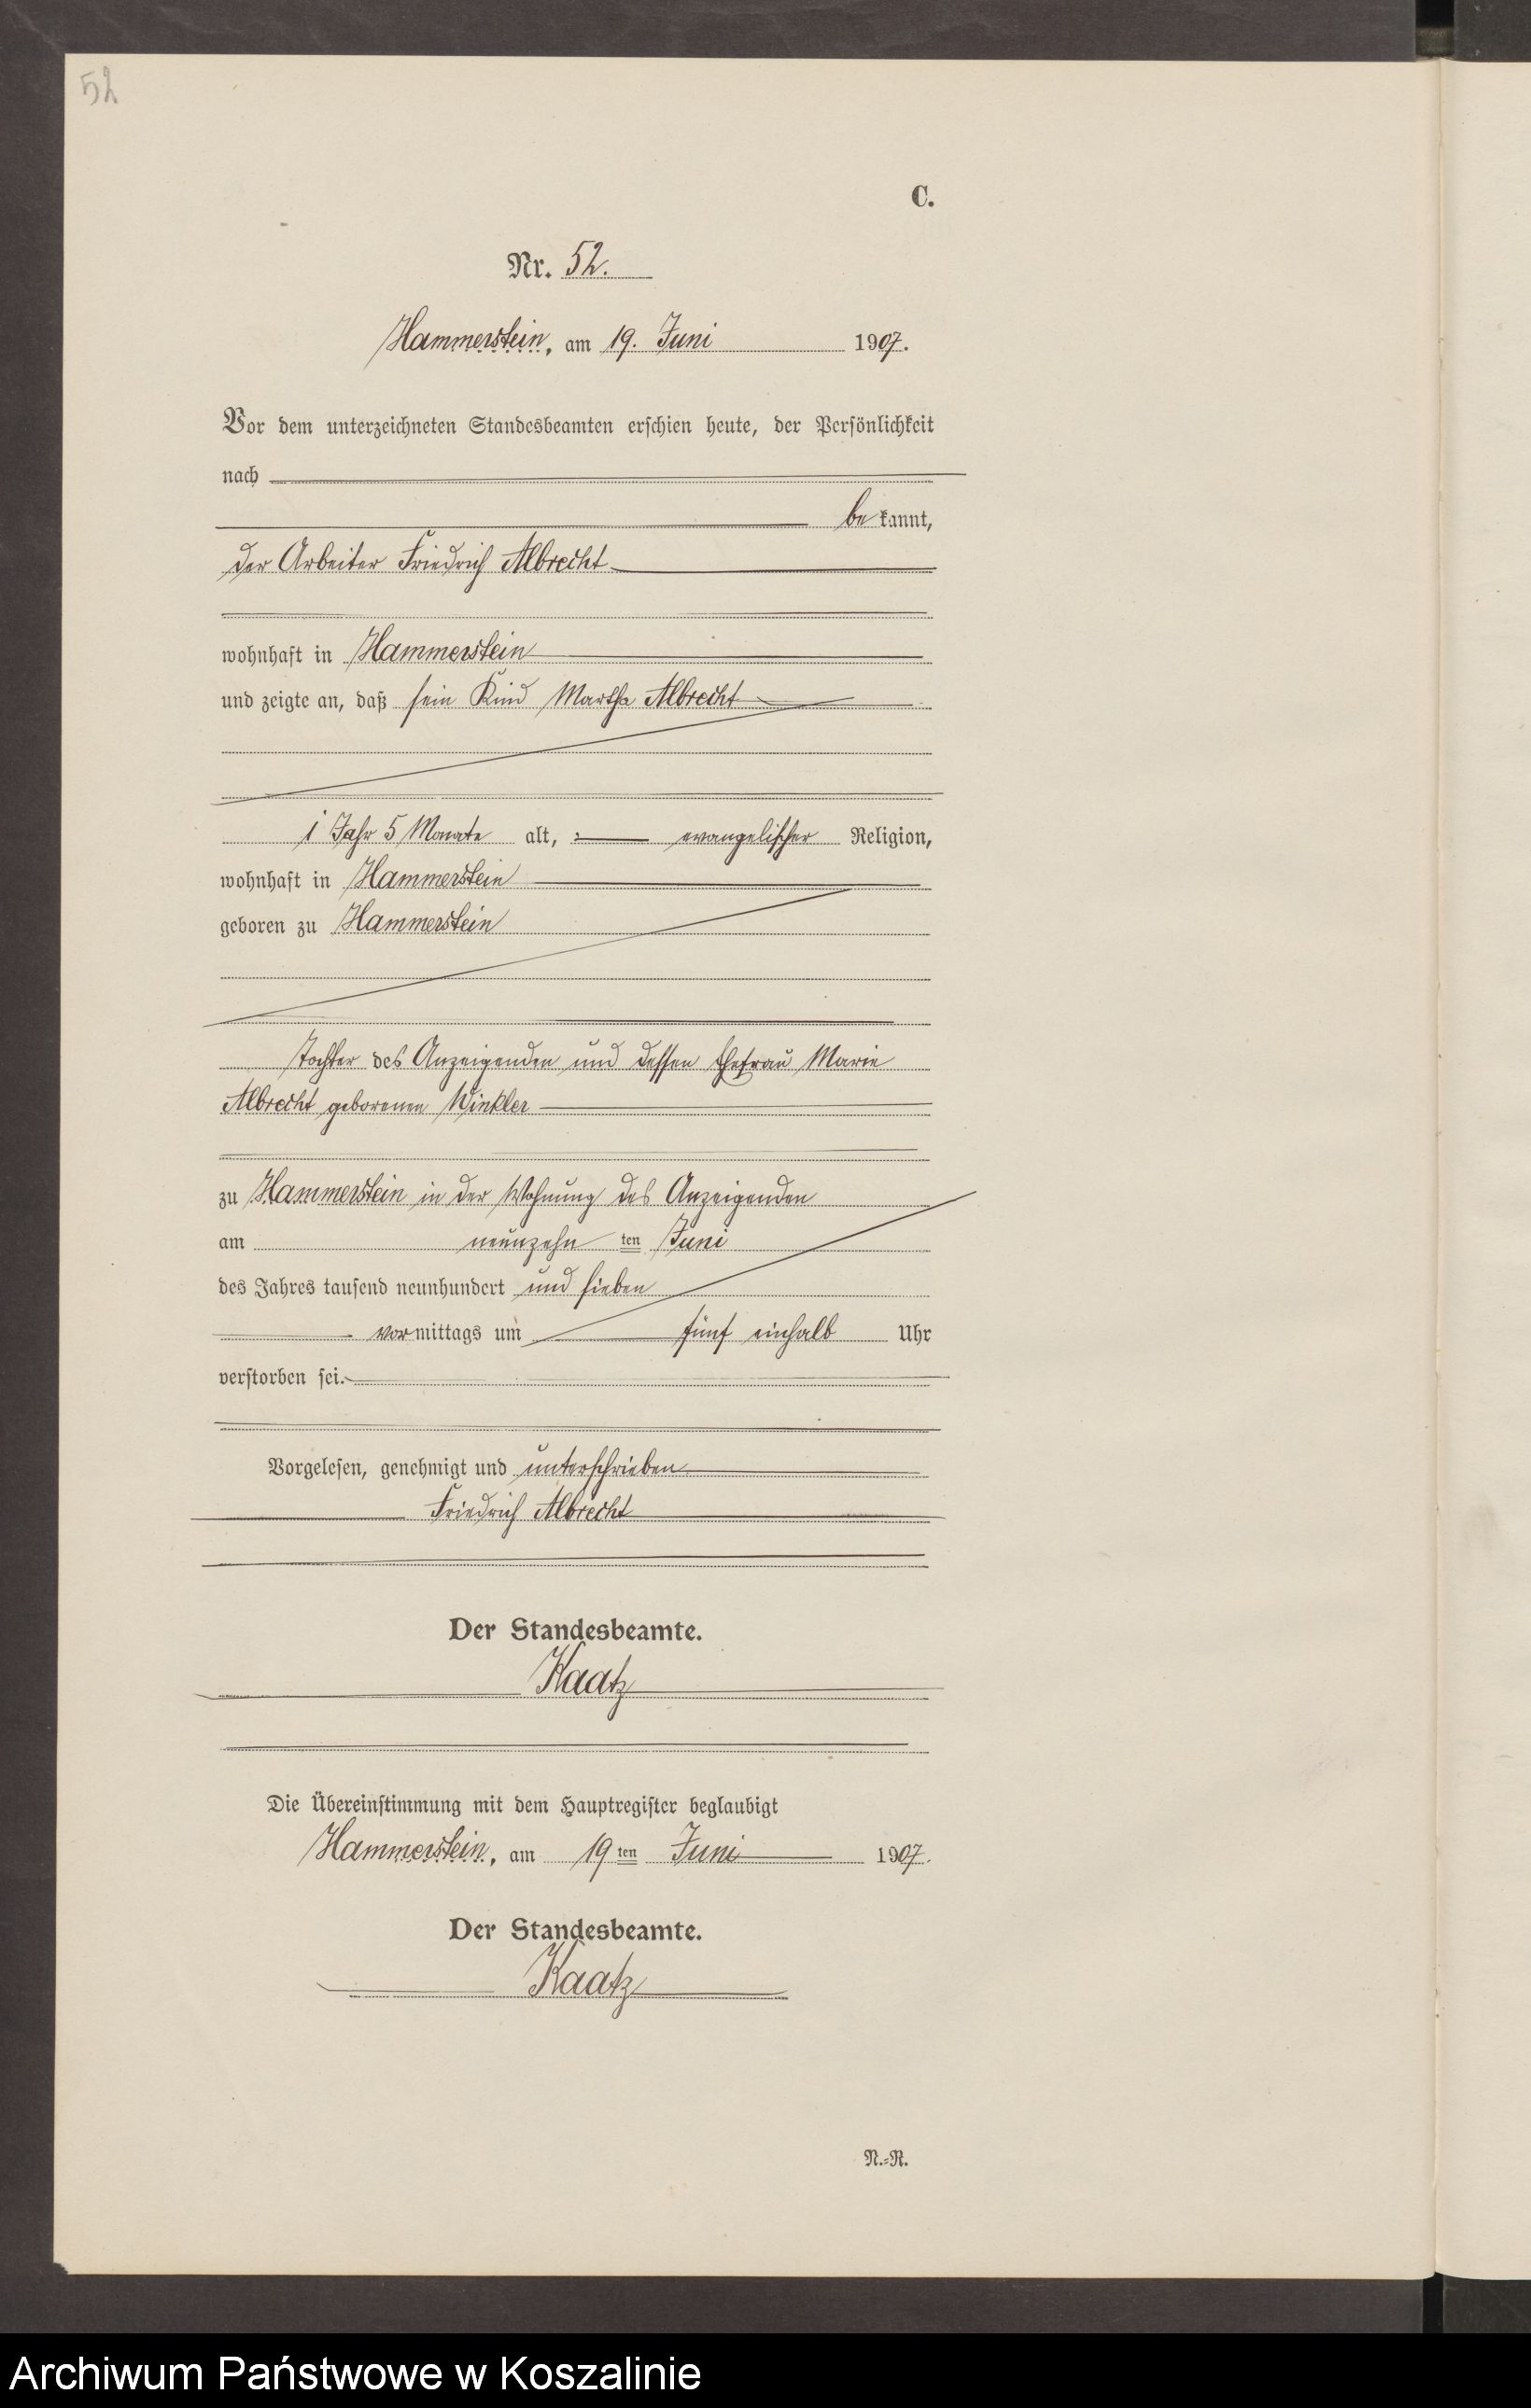 52
C.
Nr. 52.
Hammerstein, am 19. Juni 1907.
Vor dem unterzeichneten Standesbeamten erschien heute, der Persönlichkeit
nach
bekannt,
der Arbeiter Friedrich Albrecht
wohnhaft in Hammerstein
und zeigte an, daß sein Kind Martha Albrecht
1 Jahr 5 Monate alt, evangelischer Religion,
wohnhaft in Hammerstein
geboren zu Hammerstein
Tochter des Anzeigenden und dessen Ehefrau Marie
Albrecht geborenen Winkler
zu Hammerstein in der Wohnung des Anzeigenden
am neunzehn ten Juni
des Jahres tausend neunhundert und sieben
vormittags um fünf einhalb Uhr
verstorben sei.
Vorgelesen, genehmigt und unterschrieben
Friedrich Albrecht
Der Standesbeamte.
Kaatz
Die Übereinstimmung mit dem Hauptregister beglaubigt
Hammerstein, am 19 ten Juni 1907.
Der Standesbeamte.
Kaatz
N.=R.
Archiwum Państwowe w Koszalinie